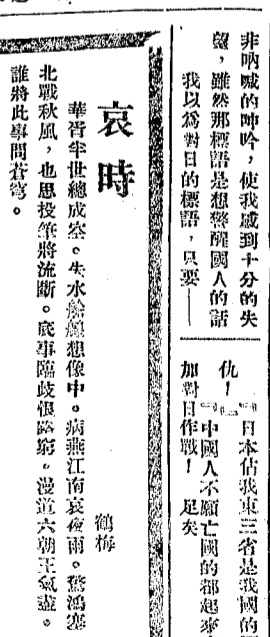 非吶喊的呻吟，使我感到十分的失
望，雖然那標語是想警醒國人的話
我以爲對日的標語，只要——
「日本佔我東三省是我國的
仇！」
「中國人不願亡國的都起來
加對日作戰！」足矣
哀時
鶴梅
華胥半世總成空。失水想像中。病燕江南哀夜雨。驚鴻塞
北戰秋風，也思投筆將流斷。底事臨歧恨路窮。漫道六朝王氣盡。
誰將此事問蒼穹。